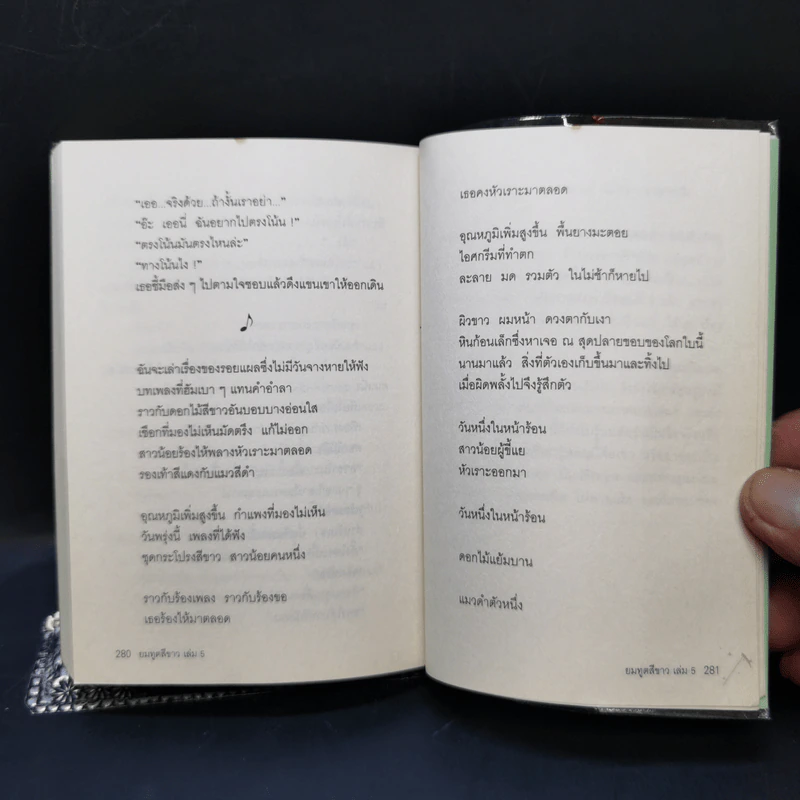 "เออ...จริงด้วย...ถ้างั้นเราอย่า..."
"อ๊ะ เออนี่ ฉันอยากไปตรงโน้น !"
"ตรงโน้นมันตรงไหนล่ะ"
"ทางโน้นไง !"
เธอชี้มือส่ง ๆ ไปตามใจชอบแล้วดึงแขนเขาให้ออกเดิน
♪
ฉันจะเล่าเรื่องของรอยแผลซึ่งไม่มีวันจางหายให้ฟัง
บทเพลงที่ฮัมเบา ๆ แทนคำอำลา
ราวกับดอกไม้สีขาวอันบอบบางอ่อนใส
เชือกที่มองไม่เห็นมัดตรึง แก้ไม่ออก
สาวน้อยร้องไห้พลางหัวเราะมาตลอด
รองเท้าสีแดงกับแมวสีดำ
อุณหภูมิเพิ่มสูงขึ้น กำแพงที่มองไม่เห็น
วันพรุ่งนี้ เพลงที่ได้ฟัง
ชุดกระโปรงสีขาว สาวน้อยคนหนึ่ง
ราวกับร้องเพลง ราวกับร้องขอ
เธอร้องไห้มาตลอด
280 ยมทูตสีขาว เล่ม 5
เธอคงหัวเราะมาตลอด
อุณหภูมิเพิ่มสูงขึ้น พื้นยางมะตอย
ไอศกรีมที่ทำตก
ละลาย มด รวมตัว ในไม่ช้าก็หายไป
ผิวขาว ผมหน้า ดวงตากับเงา
หินก้อนเล็กซึ่งหาเจอ ณ สุดปลายขอบของโลกใบนี้
นานมาแล้ว สิ่งที่ตัวเองเก็บขึ้นมาและทิ้งไป
เมื่อผิดพลั้งไปจึงรู้สึกตัว
วันหนึ่งในหน้าร้อน
สาวน้อยผู้ขี้แย
หัวเราะออกมา
วันหนึ่งในหน้าร้อน
ดอกไม้แย้มบาน
แมวดำตัวหนึ่ง
ยมทูตสีขาว เล่ม 5 281